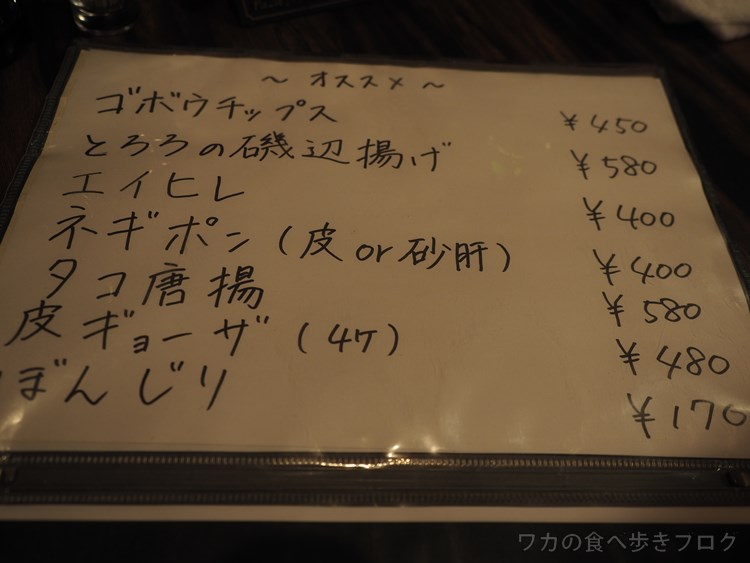 ～ オススメ ～
ゴボウチップス ¥450
とろろの磯辺揚げ ¥580
エイヒレ ¥400
ネギポン(皮 or 砂肝) ¥400
タコ唐揚 ¥580
皮ギョーザ(4ケ) ¥480
ぼんじり ¥170
ワカの食べ歩きブログ